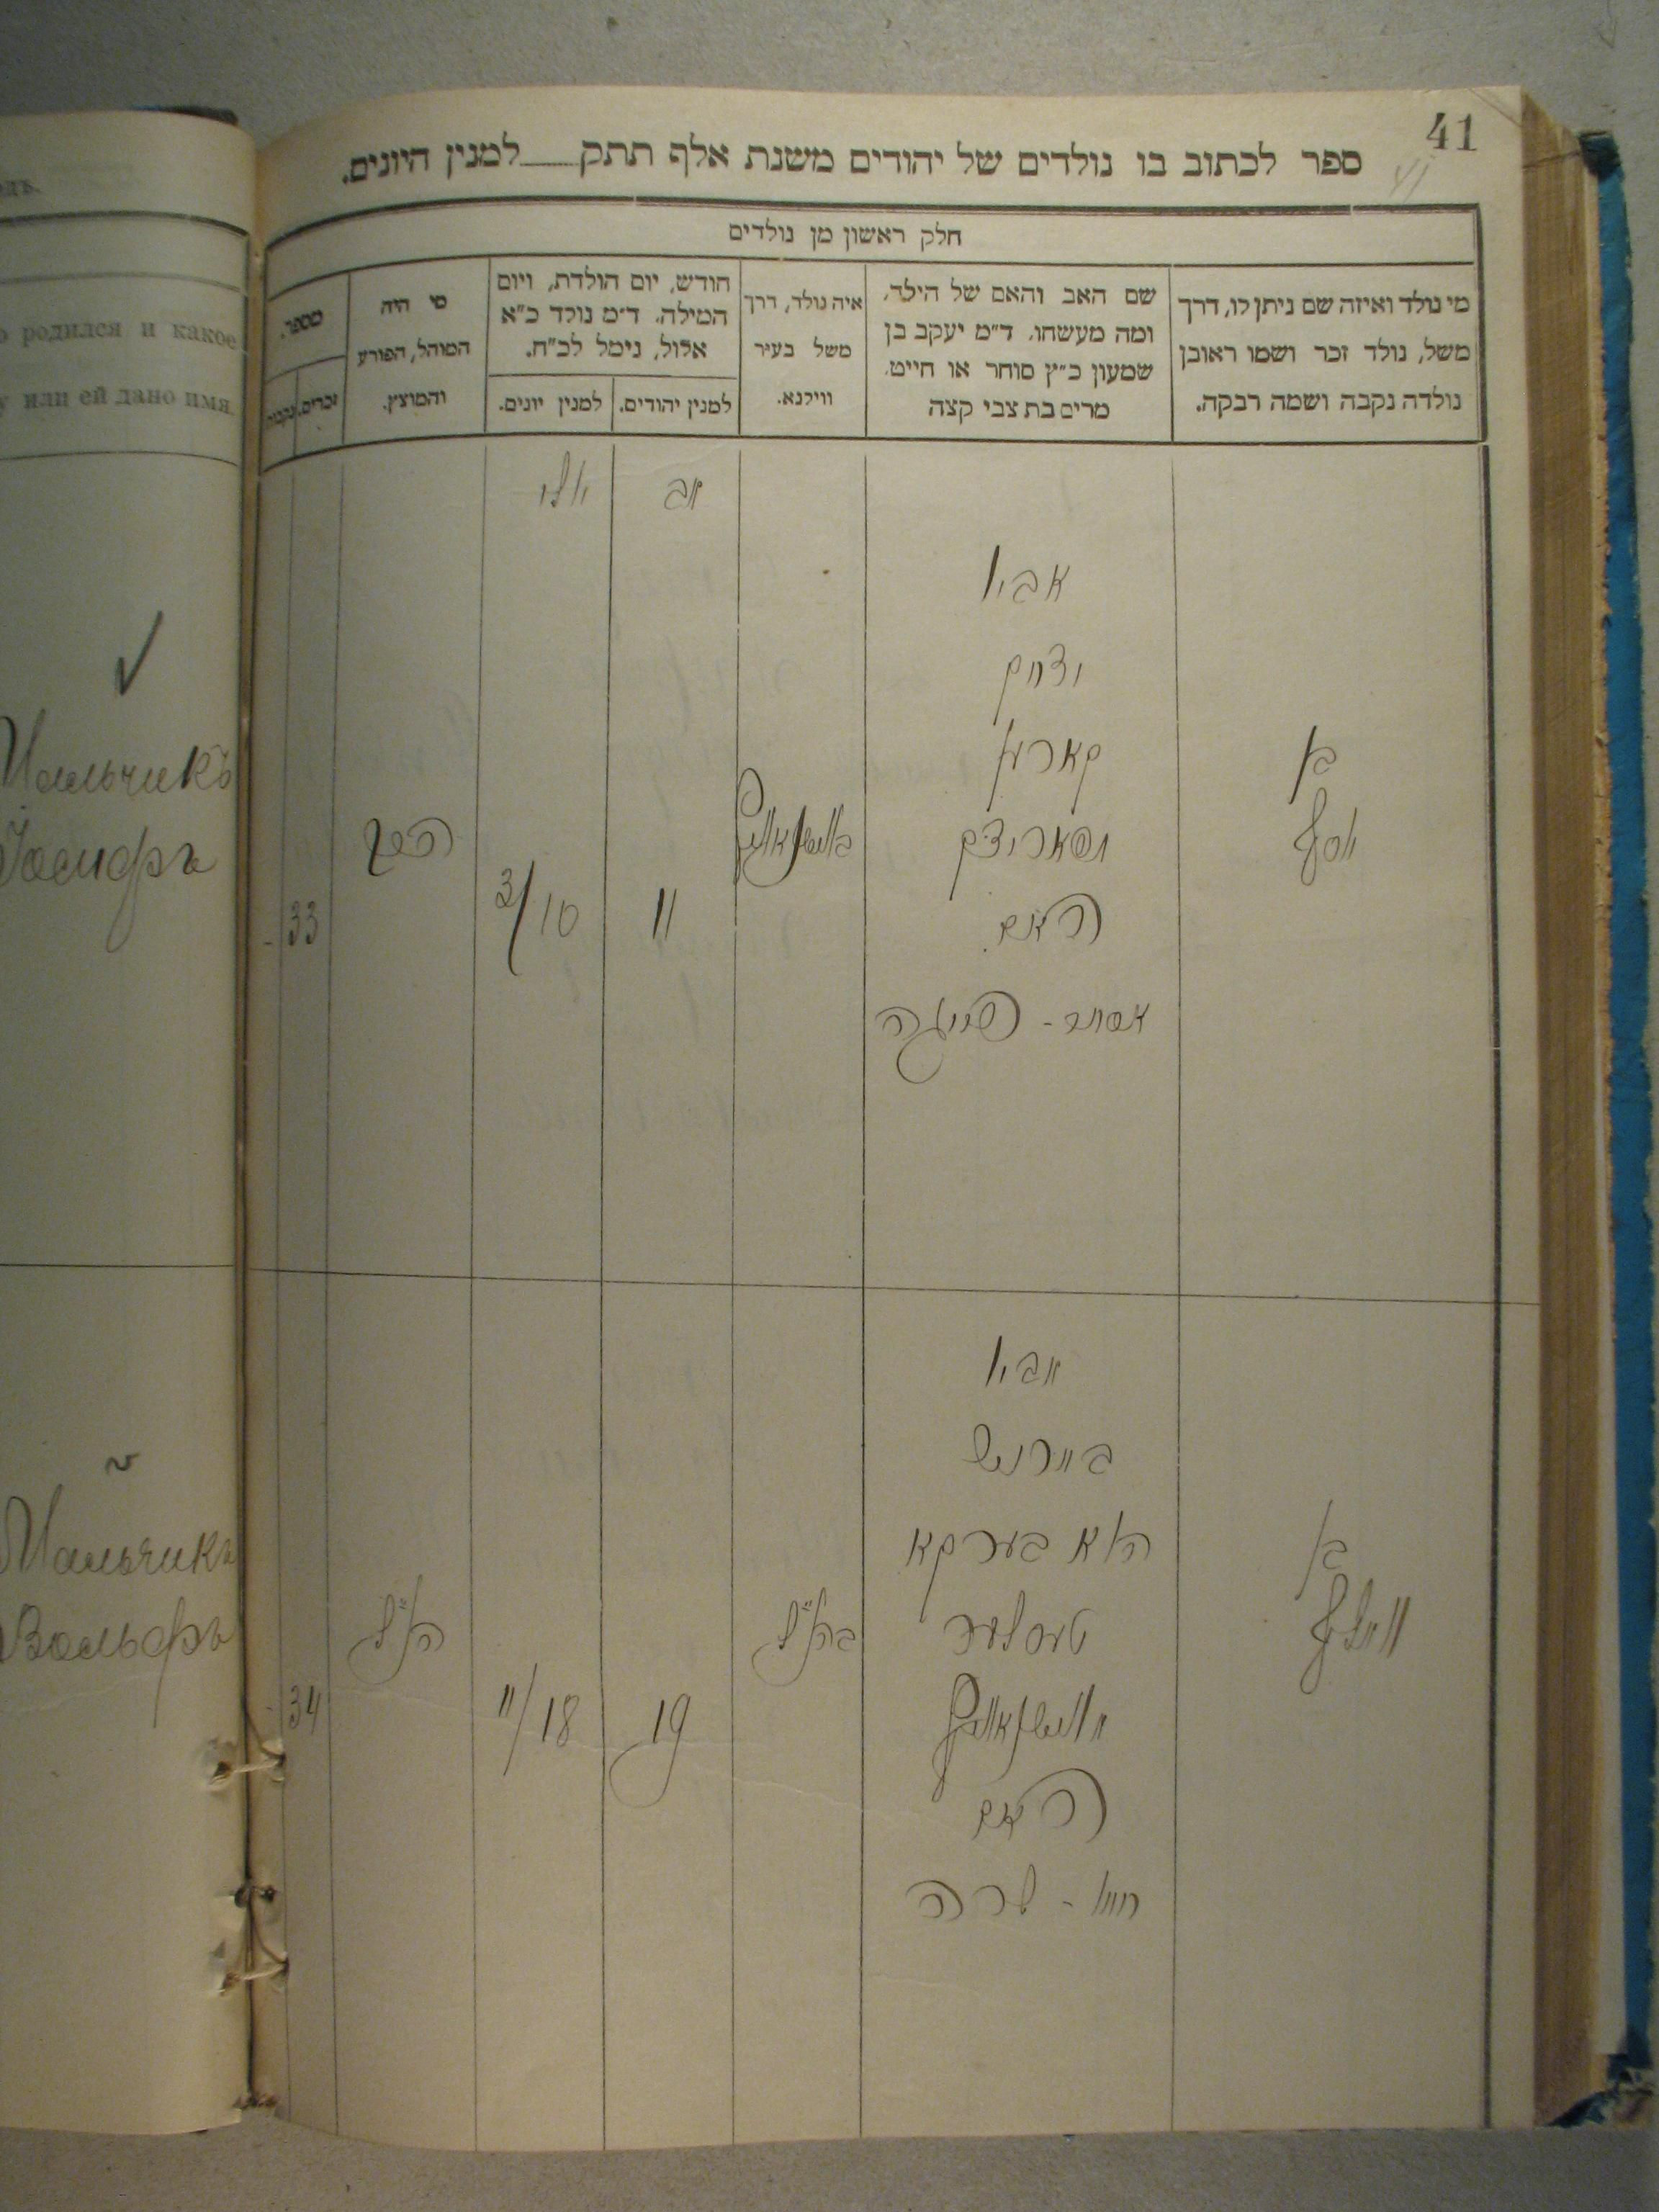 41
41
ספר לכתוב בו נולדים של יהודים משנת אלף תתק___למנין היונים.
חלק ראשון מן נולדים
מי נולד ואיזה שם ניתן לו, דרך
משל, נולד זכר ושמו ראובן
נולדה נקבה ושמה רבקה.
שם האב והאם של הילד,
ומה מעשהו. ד״מ יעקב בן
שמעון כ״ץ סוחר או חייט.
מרים בת צבי קצה
איה נולד, דרך
משל בעיר
ווילנא.
חודש, יום הולדת, ויום
המילה. ד״מ נולד כ״א
אלול, נימל לכ״ח.
למנין יהודים.
למנין יונים.
מי היה
המוהל, הפורע
והמוצץ.
מספר.
זכרים.
נקבות
אב
יולי
בן
יוסף
אביו
יצחק
קארען
האם
אסתר -
11
3/10
33
בן
וואלף
אביו
הוא בערקא
טעסלער
האם
חיה - שרה
בהנ״ל
19
11/18
הנ״ל
34
одъ.
о родился и какое
у или ей дано имя.
Мальчикъ
Іосифъ
Мальчикъ
Вольфъ